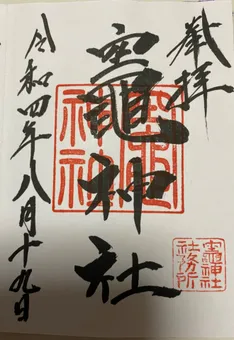 奉拝
竈神社
令和四年八月十九日
竈神社
社務所